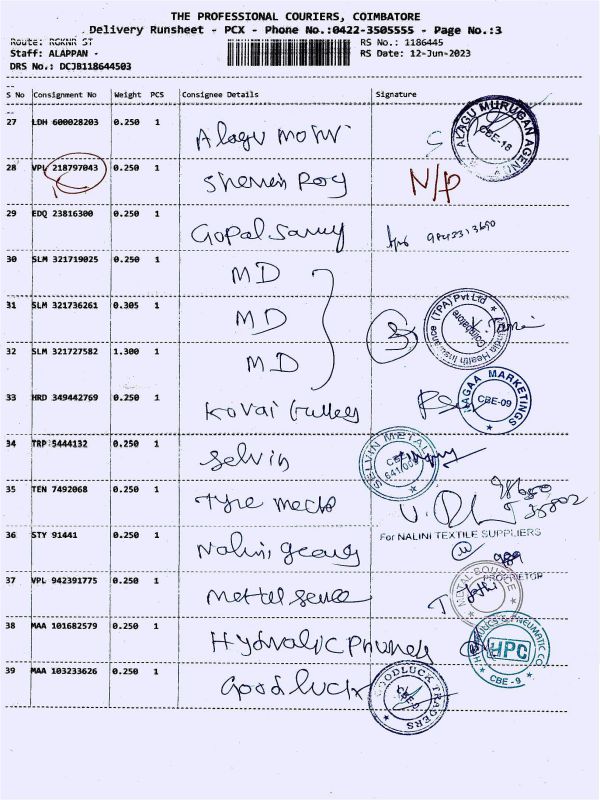 THE PROFESSIONAL COURIERS, COIMBATORE
Delivery Runsheet - PCX - Phone No.:0422-3505555 - Page No.:3
Route: RGKNR ST
RS No.: 1186445
Staff: ALAPPAN -
RS Date: 12-Jun-2023
DRS No.: DCJB118644503
S No Consignment No Weight PCS Consignee Details Signature
27 LDH 600028203 0.250 1 Alagu
ALAGU MURUGAN AGEN
CBE-18
28 VPL 218797043 0.250 1 Sherwin Roy N/P
29 EDQ 23816300 0.250 1 Gopal Samy
30 SLM 321719025 0.250 1 MD
31 SLM 321736261 0.305 1 MD
India Health Insurance (TPA) Pvt Ltd
Coimbatore
32 SLM 321727582 1.300 1 MD
33 HRD 349442769 0.250 1 Kovai
NAGAA MARKETINGS
CBE-09
34 TRP 5444132 0.250 1 Selvin
SELVIN METAL
35 TEN 7492068 0.250 1 Tyre
36 STY 91441 0.250 1 Nalini
For NALINI TEXTILE SUPPLIERS
PROPRIETOR
37 VPL 942391775 0.250 1 Mettel
METAL SOURCE
38 MAA 101682579 0.250 1 Hydralic
HPC
CBE - 9
39 MAA 103233626 0.250 1 Good luck
GOODLUCK TRADERS